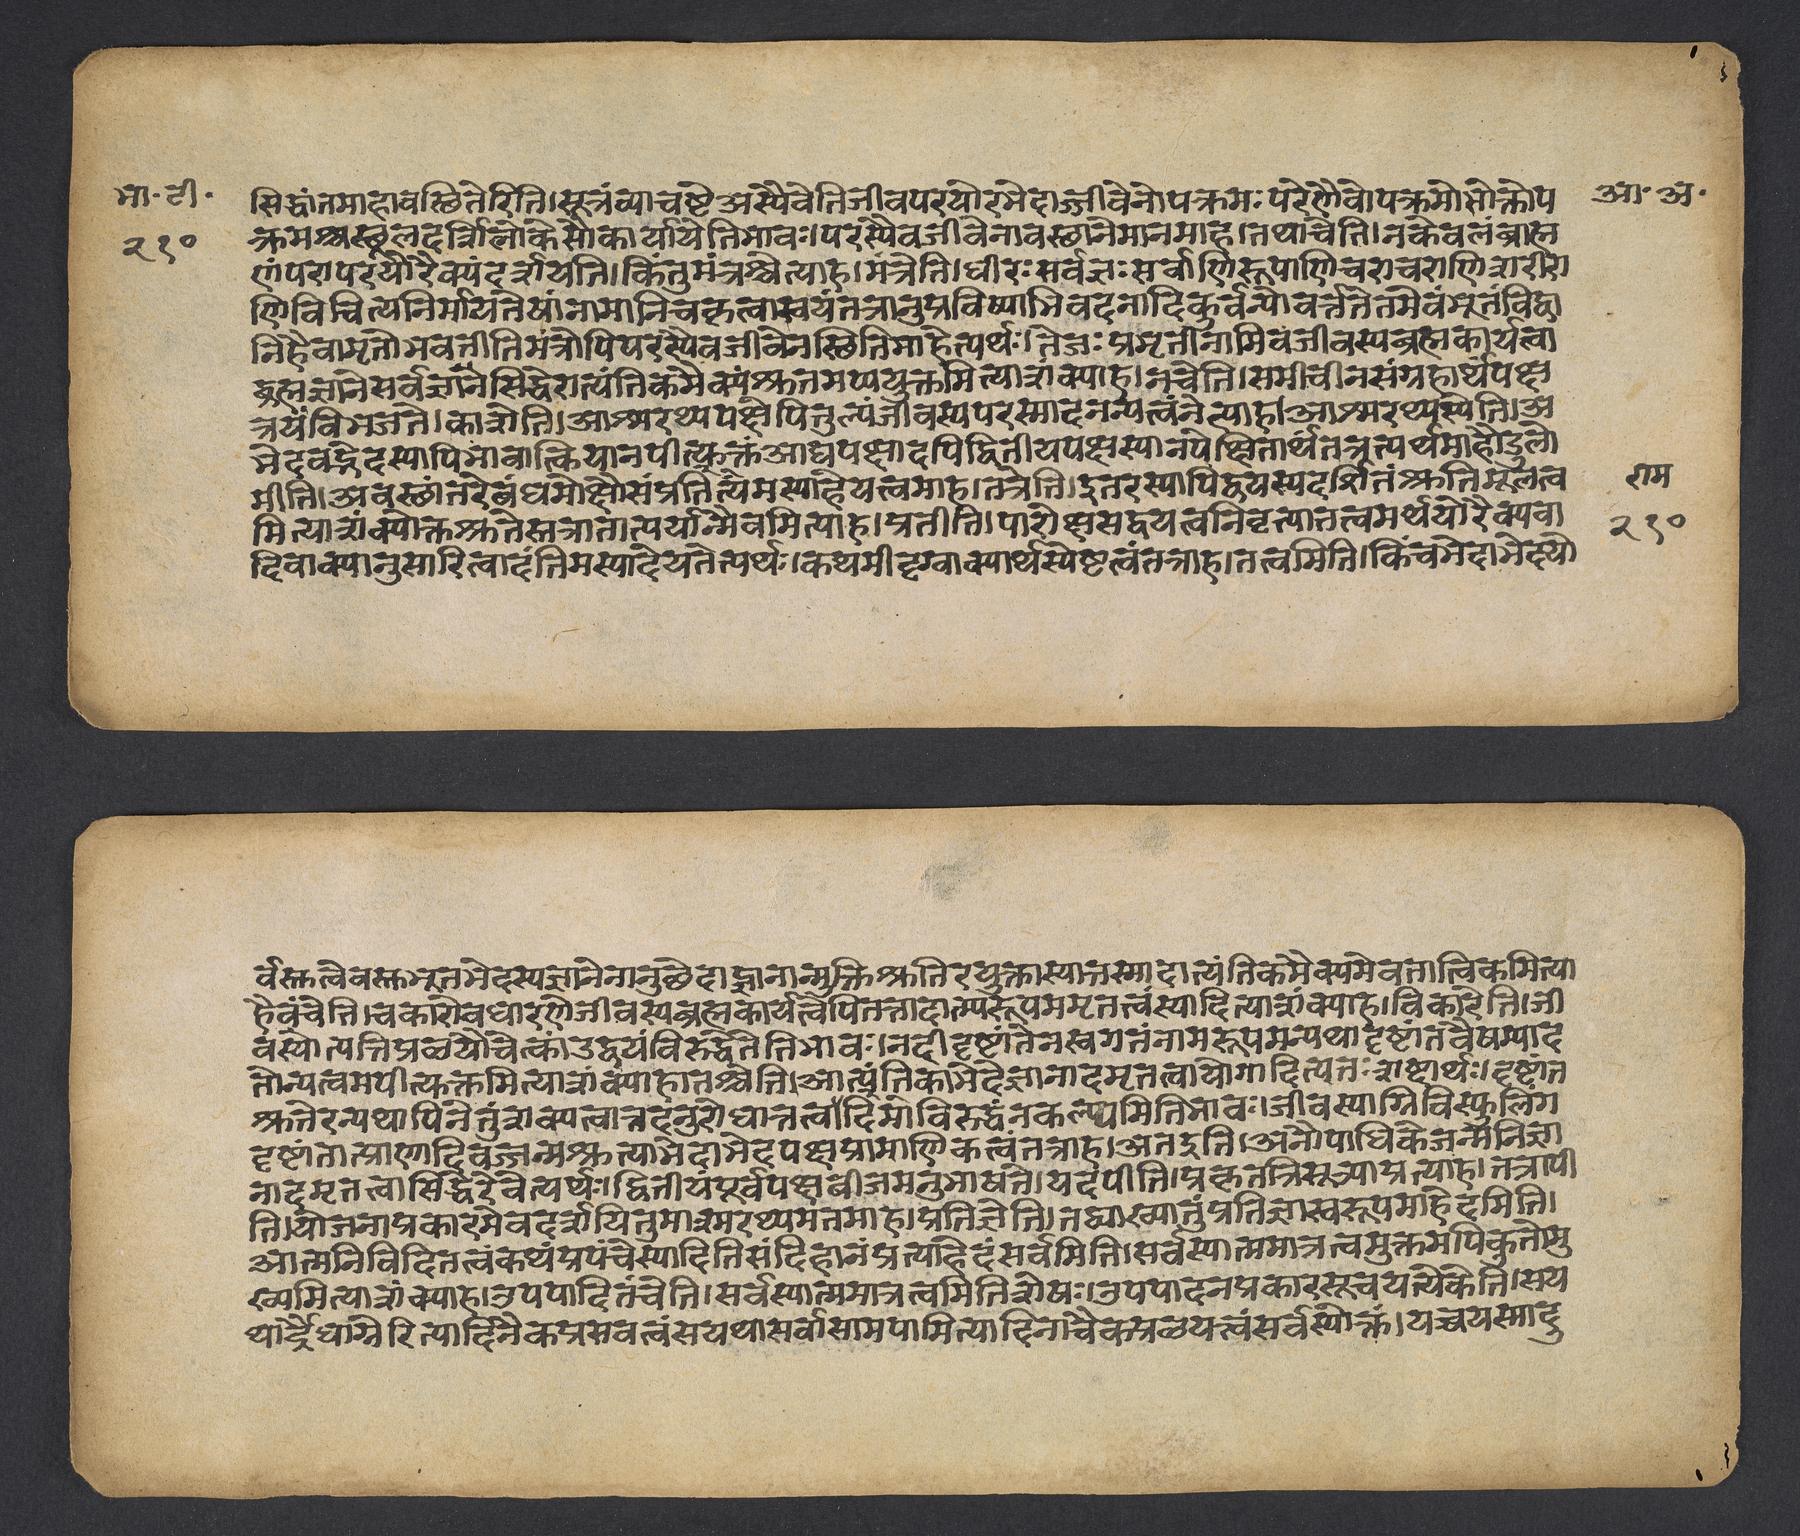 भा॰ टी॰
२१०
आ॰ अ॰
सिद्धांतमाहावस्थितेरिति।सूत्रंव्याचष्टेअस्यैवेतिजीवपरयोरभेदाज्जीवेनोपक्रमः परेणैवोपक्रमोसोक्तोप
क्रमश्चास्थूलदर्शिलोकसौकार्यायेतिभावः।परस्यैवजीवेनावस्थानेमानमाह।तथाचेति।नकेवलंब्राह्म
णंपरापरयोरैक्यंदर्शयति।किंतुमंत्रश्चेत्याह।मंत्रेति।धीरः सर्वज्ञः सर्वाणिरूपाणिचराचराणिशरीरा
णिविचित्यनिर्मायतेषांनामानिचकृत्वास्वयंतत्रानुप्रविष्याभिवदनादिकुर्वन्योवर्त्ततेतमेवंभूतंविद्वा
निहैवामृतोभवतीतिमंत्रोपिपरस्यैवजीवेनस्थितिमाहेत्यर्थः।तेजः प्रभृतीनामिवजीवस्यब्रह्मकार्यत्वा
द्ब्रह्मज्ञानेसर्वज्ञानसिद्धेरात्यंतिकमैक्यंश्रुतमप्ययुक्तमित्याशंक्याह।नचेति।समीचीनसंग्रहार्थंपक्ष
त्रयंविभजते।काशेति।आश्मरथ्यपक्षेपितुल्यंजीवस्यपरस्मादनन्यत्वंनेत्याह।आश्मरथ्यस्येति।अ
भेदवद्भेदस्यापिभावात्कियानपीत्युक्तंआद्यपक्षादपिद्वितीयपक्षस्यानपेक्षितार्थतत्रत्यर्थमाहौडुलो
मीति।अवस्थांतरेबंधमोक्षौसंप्रतित्यमस्याहेयत्वमाह।तत्रेति।इतरस्यापिद्वयस्यदर्शितंश्रुतिमूलत्व
मित्याशंक्योक्तश्रुतेस्तत्रातात्पर्यान्मैवमित्याह।प्रतीति।पारोक्षसद्वयत्वनिवृत्यातत्वमर्थयोरैक्यवा
दिवाक्यानुसारित्वादंतिमस्यादेयतेत्यर्थः।कथमीदृग्वाक्यार्थस्येष्टत्वंतत्राह।तत्वमिति।किंचभेदाभेदयो
राम
२१०
र्वस्तुत्वेवस्तुभूतभेदस्यज्ञानेनानुछेदाज्ज्ञानान्मुक्तिश्रुतिरयुक्तास्यात्तस्मादात्यंतिकमैक्यमेवतात्विकमित्या
हैवंचेति।चकारोवधारणेजीवस्यब्रह्मकार्यत्वेपितत्तादात्म्यरूपममृतत्वंस्यादित्याशंक्याह।विकारेति।जी
वस्योत्पत्तिप्रळयौचेत्कांउद्वयंविरुद्ध्येतेतिभावः।नदीदृष्टांतेनस्वगतंनामरूपमन्यथादृष्टांतवैषम्याद
तोन्यत्वमपीत्युक्तमित्याशंक्याहातश्चेति।आत्यंतिकाभेदेज्ञानादमृतत्वायोगादित्यतः शब्दार्थः।दृष्टांत
श्रुतेरन्यथापिनेतुंशक्यत्वान्नतदनुरोधात्तत्वादिमोविरुद्धंनकल्प्यमितिभावः।जीवस्याग्निविस्फुलिंग
दृष्टांतात्प्राणादिवज्जन्मश्रुत्याभेदाभेदपक्षप्रामाणिकत्वंतत्राह।अतइति।अनौपाधिकेजन्मनिज्ञा
नादमृतत्वासिद्धेरेवेत्यर्थः।द्वितीयंपूर्वपक्षबीजमनुभाषते।यदपीति।प्रकृतत्रिसूत्र्याप्रत्याह।तत्रापी
ति।योजनाप्रकारमेवदर्शयितुमाश्मरथ्यमतमाह।प्रतिज्ञेति।तद्व्याख्यातुंप्रतिज्ञास्वरूपमाहेदमिति।
आत्मनिविदितत्वंकथंप्रपंचेस्यादितिसंदिहानंप्रत्याहेदंसर्वमिति।सर्वस्यात्ममात्रत्वमुक्तमपिकुतोमु
ख्यमित्याशंक्याह।उपपादितंचेति।सर्वस्यात्ममात्रत्वमितिशेषः।उपपादनप्रकारसूचयत्येकेति।सय
थार्द्रैधाग्नेरित्यादिनैकप्रसवत्वंसयथासर्वासामपामित्यादिनाचैकप्रळयत्वंसर्वस्योक्तं।यच्चयस्मादु